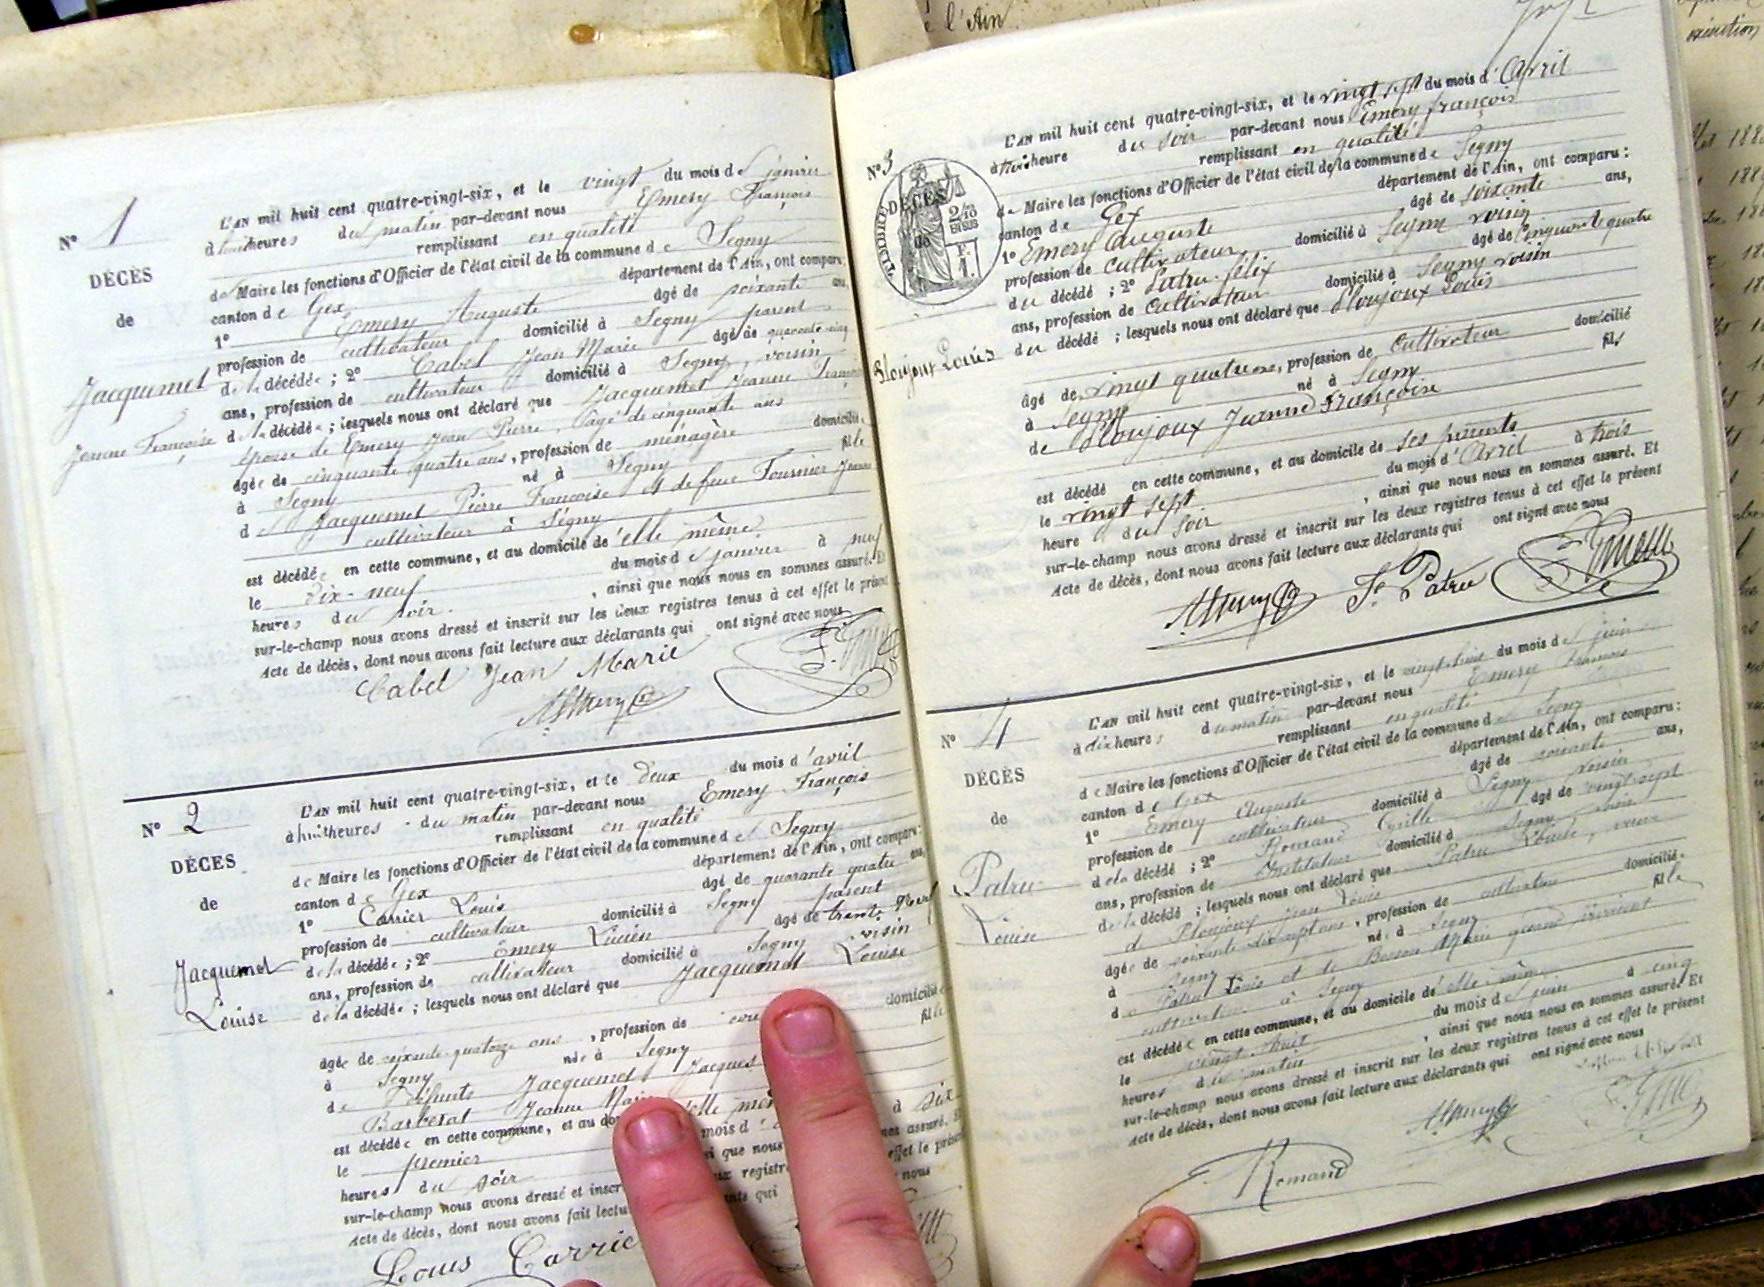 N° 1
DÉCÈS
de
Jacquemet
Jeanne Françoise
L'AN mil huit cent quatre-vingt-six, et le vingt du mois de janvier
à huit heures du matin par-devant nous Emery François
remplissant en qualité
de Maire les fonctions d'Officier de l'état civil de la commune de Segny
canton de Gex département de l'Ain, ont comparu:
1° Emery Auguste âgé de soixante ans,
profession de cultivateur domicilié à Segny parent
de la décédée; 2° Cabel Jean Marie âgé de quarante cinq
ans, profession de cultivateur domicilié à Segny, voisin
de la décédée; lesquels nous ont déclaré que Jacquemet Jeanne Françoise
épouse de Emery Jean Pierre, âgé de cinquante ans
âgée de cinquante quatre ans, profession de ménagère domiciliée
à Segny né à Segny fille
d Jacquemet Pierre Françoise et de feue Fournier Jeanne
cultivateur à Ségny
est décédée en cette commune, et au domicile de 'elle même
le dix-neuf du mois de janvier à neuf
heures du soir. , ainsi que nous nous en sommes assuré. Et
sur-le-champ nous avons dressé et inscrit sur les deux registres tenus à cet effet le présent
Acte de décès, dont nous avons fait lecture aux déclarants qui ont signé avec nous
Cabel Jean Marie
N° 2
DÉCÈS
de
Jacquemet
Louise
L'AN mil huit cent quatre-vingt-six, et le deux du mois d'avril
à huit heures du matin par-devant nous Emery François
remplissant en qualité
de Maire les fonctions d'Officier de l'état civil de la commune de Segny
canton de Gex département de l'Ain, ont comparu:
1° Carrier Louis âgé de quarante quatre ans,
profession de cultivateur domicilié à Segny parent
de la décédée; 2° Emery Lucien âgé de trente neuf
ans, profession de cultivateur domicilié à Segny voisin
de la décédée; lesquels nous ont déclaré que Jacquemet Louise
âgée de soixante quatorze ans, profession de domiciliée
à Segny née à Segny fille
de défunts Jacquemet Jacques
Barberat Jeanne Marie
est décédée en cette commune, et au do elle mê
le premier mois d' à six
heures du soir
sur-le-champ nous avons dressé et inscr registre effet le présent
Acte de décès, dont nous avons fait lectu nts qui nous
Louis Carrie
N° 3
DÉCÈS
de
2/10
EN SUS
F.
1.
Ploujoux Louis
L'AN mil huit cent quatre-vingt-six, et le vingt sept du mois d'Avril
à heure du soir par-devant nous Emery françois
remplissant en qualité
de Maire les fonctions d'Officier de l'état civil de la commune de Segny
canton de Gex département de l'Ain, ont comparu:
1° Emery Auguste âgé de soixante ans,
profession de cultivateur domicilié à Segny voisin
du décédé; 2° Patru félix âgé de Cinquante quatre
ans, profession de Cultivateur domicilié à Segny voisin
du décédé; lesquels nous ont déclaré que Ploujoux Louis
âgé de vingt quatre ans, profession de Cultivateur domicilié
à Segny né à Segny fils
de Ploujoux Jeanne Françoise
est décédé en cette commune, et au domicile de ses parents
le vingt sept du mois d'Avril à trois
heure du soir , ainsi que nous nous en sommes assuré. Et
sur-le-champ nous avons dressé et inscrit sur les deux registres tenus à cet effet le présent
Acte de décès, dont nous avons fait lecture aux déclarants qui ont signé avec nous
Patru
N° 4
DÉCÈS
de
Patru
Louise
L'AN mil huit cent quatre-vingt-six, et le vingt huit du mois de juin
à dix heures du matin par-devant nous Emery François
remplissant en qualité
de Maire les fonctions d'Officier de l'état civil de la commune de Segny
canton de Gex département de l'Ain, ont comparu:
1° Emery Auguste âgé de soixante ans,
profession de cultivateur domicilié à Segny voisin
de la décédé; 2° Romand Cyrille âgé de vingt sept
ans, profession de Instituteur domicilié à Segny voisin
de la décédé; lesquels nous ont déclaré que Patru Louise, veuve
d Ploujoux Jean Louis
âgée de soixante dix sept ans, profession de cultivateur domiciliée
à Segny née à Segny fille
d Patru Louis et de Marie
cultivateur à Segny
est décédée en cette commune, et au domicile de elle même
le vingt huit du mois de juin à cinq
heures du matin , ainsi que nous nous en sommes assuré. Et
sur-le-champ nous avons dressé et inscrit sur les deux registres tenus à cet effet le présent
Acte de décès, dont nous avons fait lecture aux déclarants qui ont signé avec nous
Romand
é l'Ain